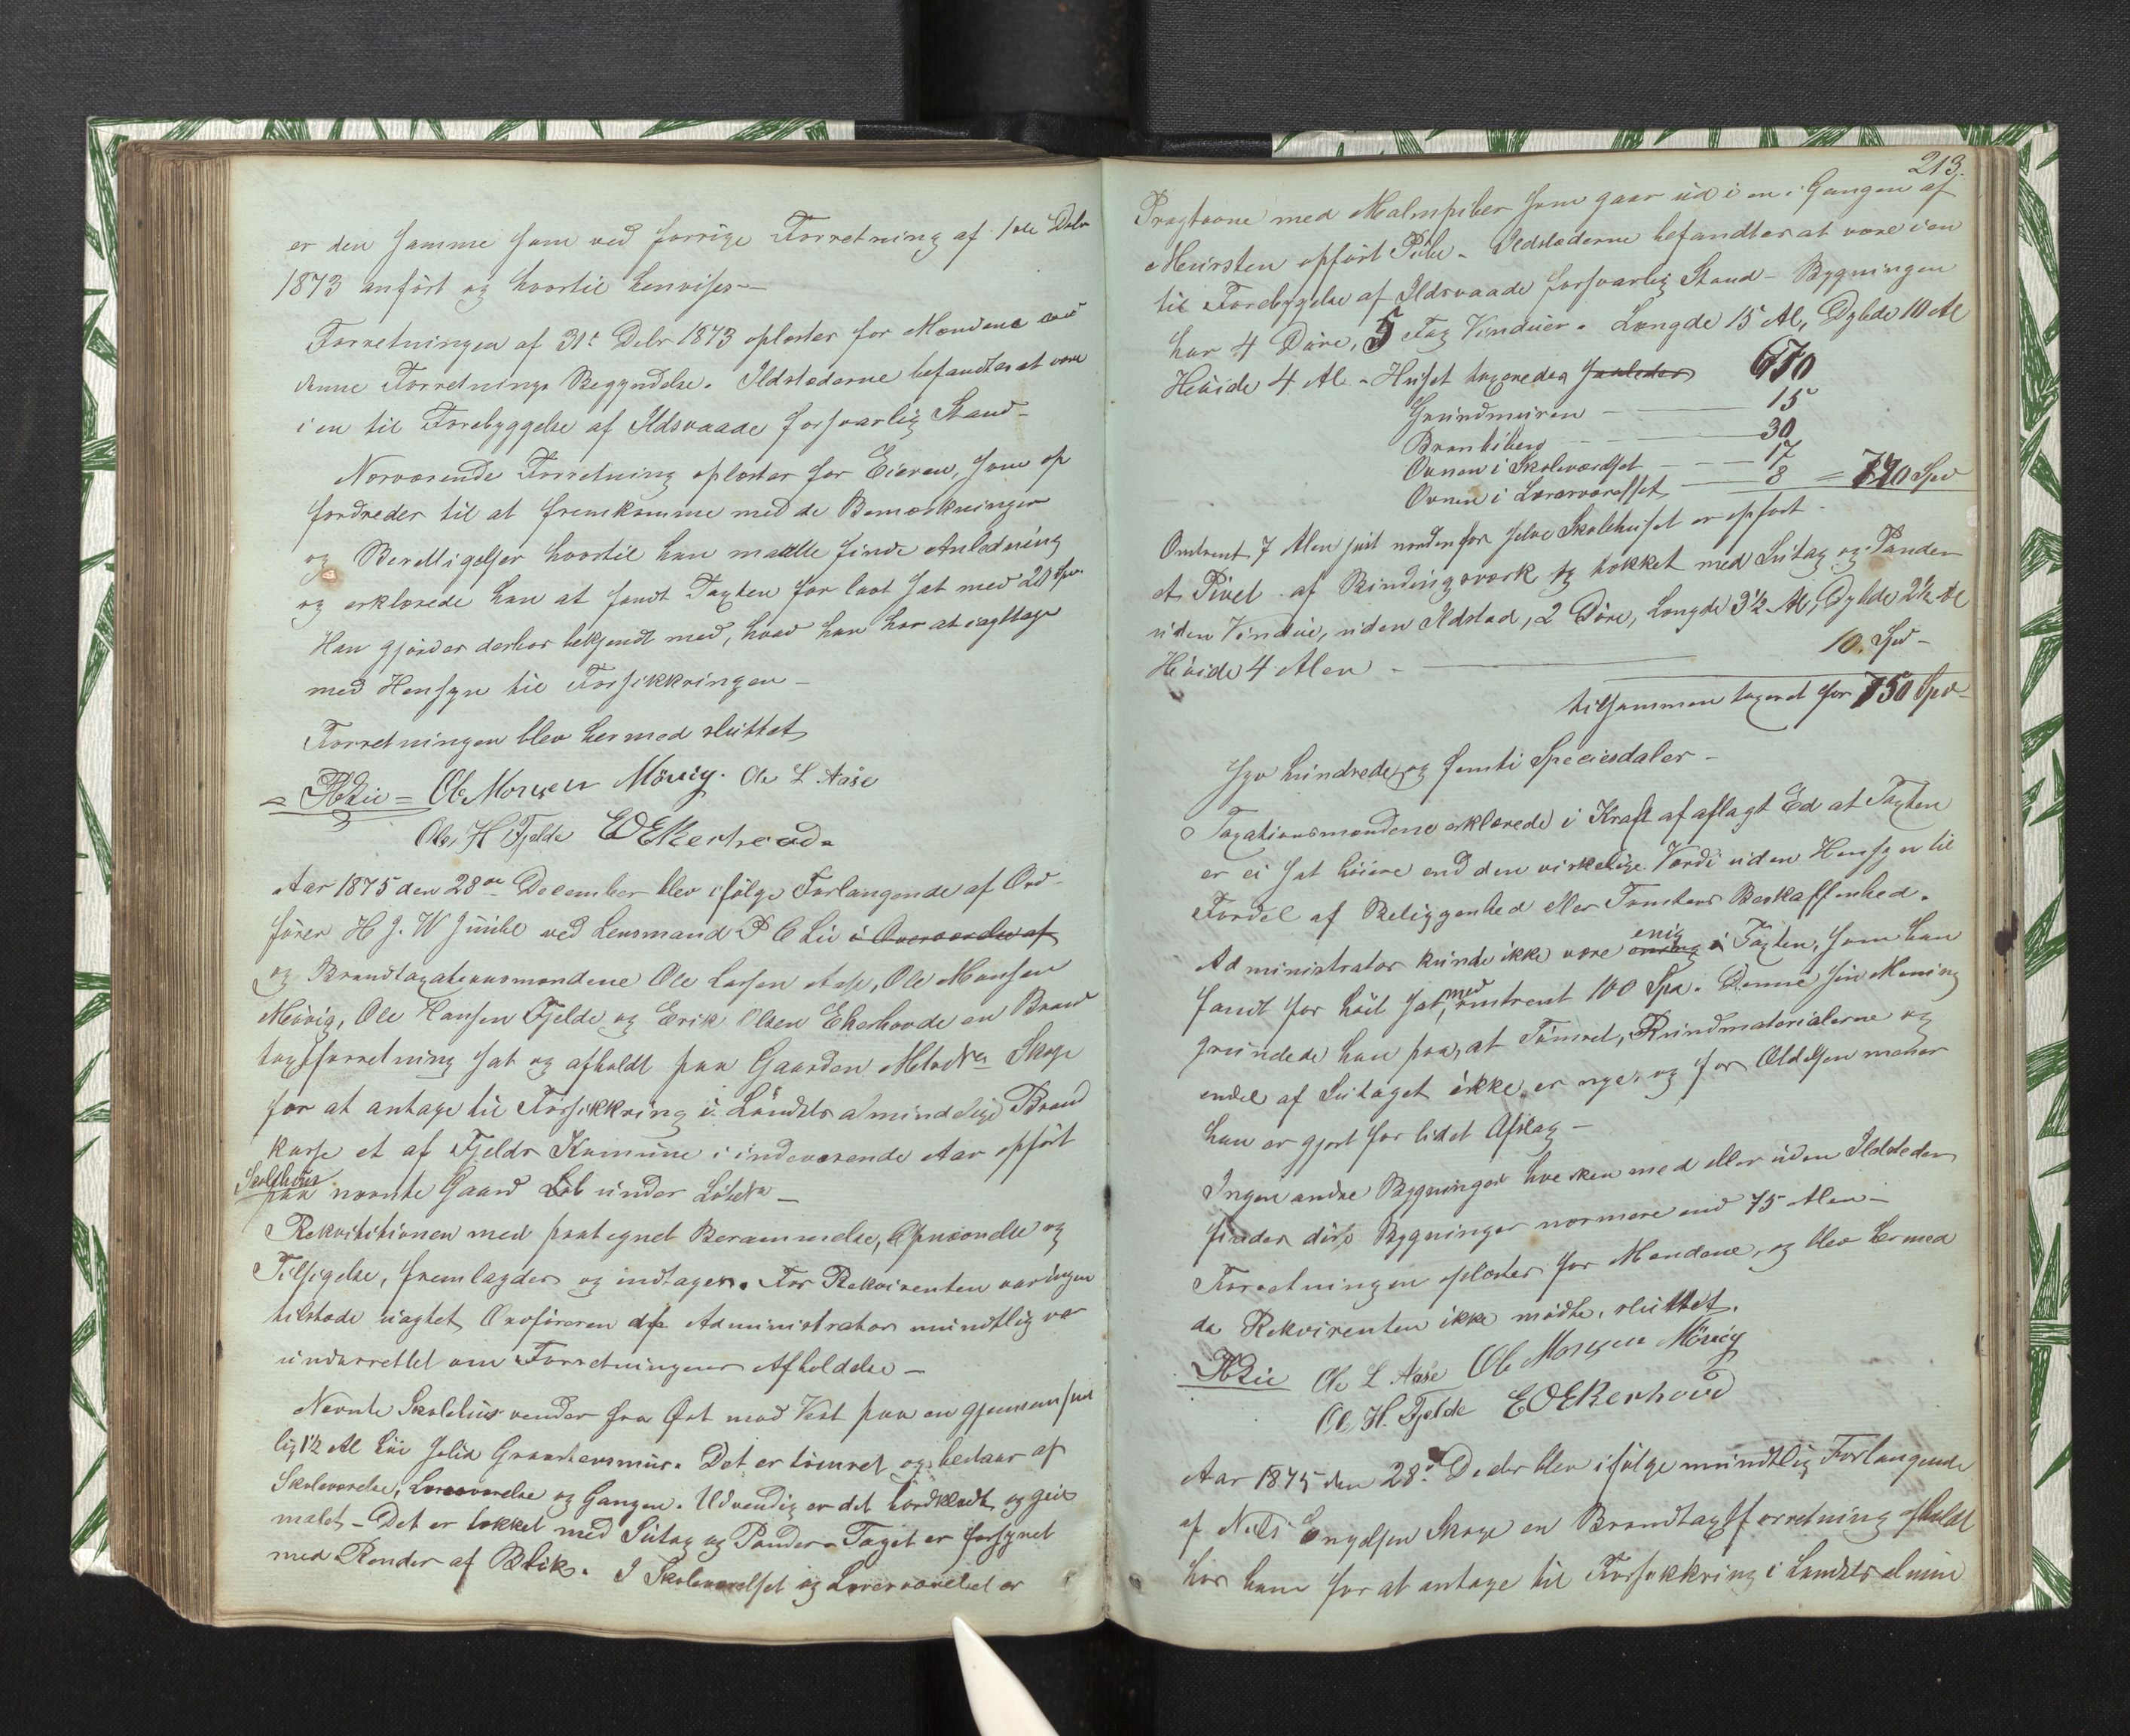 er den samme som ved forrige Forretning af
1873 anført og hvortil henvises –
Forretningen af 31t Debr 1873 oplæstes for Mændene ved
denne Forretnings Begyndelse. Ildstederne befandtes at være
i en til Forebyggelse af Ildsvaade forsvarlig Stand –
Nærværende Forretning oplæstes for Eieren, som op
fordredes til at fremkomme med de Bemærkninger
og Berettigelser hvortil han maatte finde Anledning
og erklærede han at fandt Taxten for lavt sat med 20 Spd.
Han gjordes derhos bekjendt med, hvad han har at iagttage
med Hensyn til Forsikkringen –
Forretningen blev hermed sluttet
= PCLie = Ole Monsen Møvig. Ole L Aase
Ole H Fjelde E O Ekerhovd.
Aar 1875 den 28de December blev ifølge Forlangende af Ord-
fører H J. W ved Lensmand P C Lie i Overværelse af
og Brandtaxationsmændene Ole Larsen Aase, Ole Monsen
Møvig, Ole Hansen Fjelde og Erik Olsen Ekerhovde en Brand
taxtforretning sat og afholdt paa Gaarden Skoge
for at antage til Forsikkring i Landets almindelige Brand
kasse et af Fjelds Komune i indeværende Aar opført
Skolehus
paa nævnte Gaard under
Rekvisitionen med paategnet Berammelse, Opnævnelse og
Tilsigelse, fremlagdes og indtages. For Rekvirenten var ingen
tilstede uagtet Ordføreren Administrator mundtlig var
underrettet om Forretningens Afholdelse –
Nevnte Skolehus vender fra Øst mod Vest paa en gjennemsnit
lig 1½ Al høi solid Graastensmur. Det er tømret og bestaar af
Skoleværelse, Lærerværelse og Gangen. Udvendig er det bordklædt og
malet – Det er tækket med Sutag og Pander. Taget er forsynet
med Render af Blik. I Skoleværelset og Lærerværelset er
213.
med Malmpiber som gaar ud i en i Gangen af
Mursten opført Pibe. Ildstederne befandtes at være i en
til Forebyggelse af Ildsvaade forsvarlig Stand – Bygningen
har 4 Døre, 5 Fag Vinduer. Længde 15 Al, Dybde 10 Al
Høide 4 Al – Huset taxeredes saaledes 670
Grundmuren – 15
– 30
Ovnen i Skoleværelset – 17
Ovnen i Lærerværelset – 8 = 740 Spd
Omtrent 7 Alen just nordenfor selve Skolehuset er opført
et af Bindingsværk og tækket med Sutag og Pander
uden Vindue, uden Ildsted, 2 Døre, Længde 3½ Al, Dybde 2½ Al
Høide 4 Alen – 10 Spd –
tilsammen taxeret for 750 Spd –
Syv hundrede og femti Speciesdaler –
Taxationsmændene erklærede i Kraft af aflagt Ed at Taxten
er ei sat høiere end den virkelige Værdi uden Hensyn til
Fordel af Beliggenhed eller Tomtens Beskaffenhed.
enig
Administrator kunde ikke være i Taxten, som han
med
fandt for høit sat, omtrent 100 Spd. Denne sin Mening
grundede han paa, at Tømret, og
endel af Sutaget ikke er nye, og for Ældelsen mener
han er gjort for lidet Afslag –
Ingen andre Bygninger hverken med eller uden Ildsteder
findes disse Bygninger nærmere end 75 Alen –
Forretningen oplæstes for Mændene, og blev hermed
da Rekvirenten ikke mødte, sluttet.
PCLie Ole L Aase Ole Monsen Møvig
Ole H. Fjelde E O Ekerhovd
Aar 1875 den 28de Decbr blev ifølge mundtlig Forlangende
af Nils Engelsen Skoge en Brandtaxtforretning afholdt
hos ham for at antage til Forsikkring i Landets almin